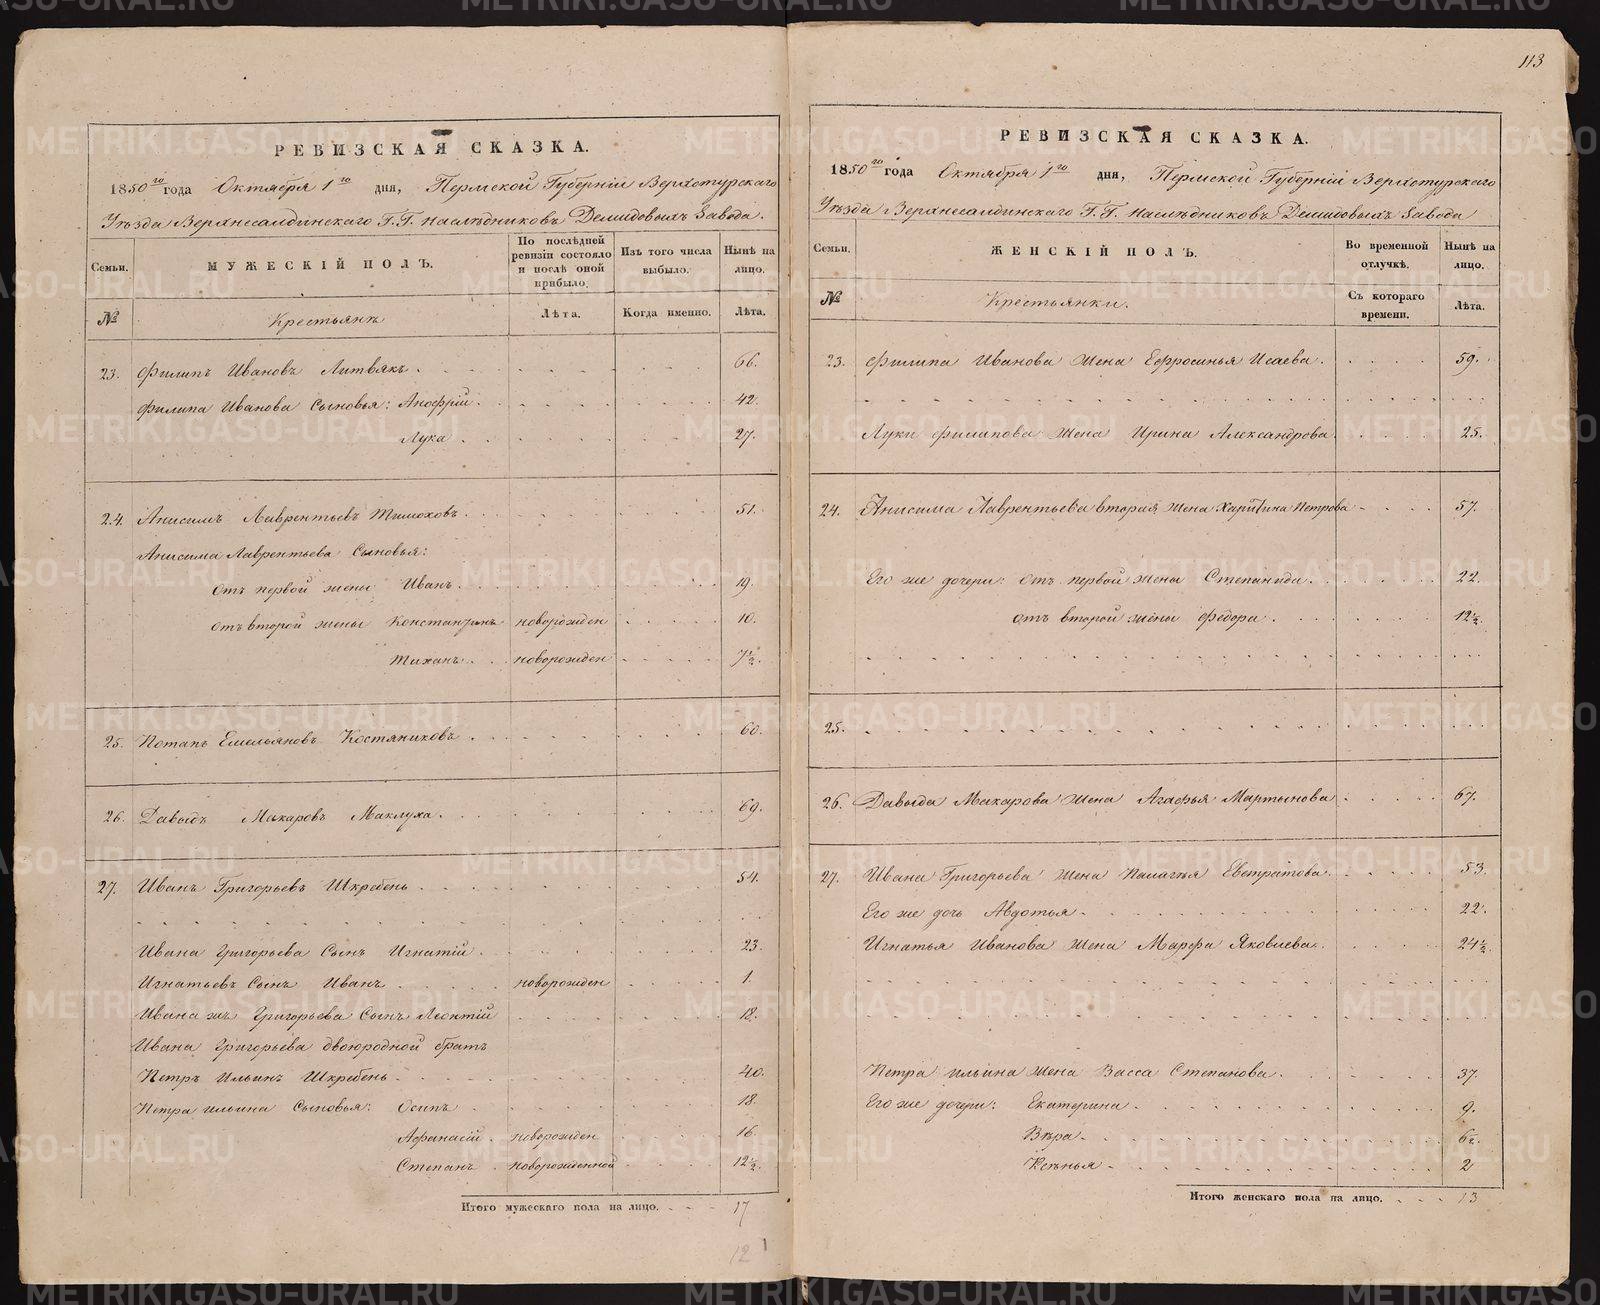 113
РЕВИЗСКАЯ СКАЗКА.
1850го года Октября 1го дня, Пермской Губернiи Верхотурскаго
Уѣзда Верхнесалдинскаго Г.Г. наслѣдниковъ Демидовыхъ Завода.
Семьи. МУЖЕСКІЙ ПОЛЪ. По послѣдней ревизіи состояло и послѣ оной прибыло. Изъ того числа выбыло. Нынѣ на лицо.
№ Крестьянъ Лѣта. Когда именно. Лѣта.
23. Филипъ Ивановъ Литвякъ. 66.
Филипа Иванова Сыновья: Анофрій. 42.
Лука. 27.
24. Анисимъ Лаврентьевъ Тимоховъ. 51.
Анисима Лаврентьева Сыновья:
отъ первой жены Иванъ. 19.
отъ второй жены Константинъ новорожден 10.
Тиханъ. новорожден 7½.
25. Потапъ Емельяновъ Костяниковъ. 60.
26. Давыдъ Макаровъ Маклуха. 69.
27. Иванъ Григорьевъ Шкребень. 54.
Ивана Григорьева Сынъ Игнатій. 23.
Игнатьевъ Сынъ Иванъ новорожден 1.
Ивана жъ Григорьева Сынъ Леонтій 12.
Ивана Григорьева двоюродной братъ
Петръ Ильинъ Шкребень. 40.
Петра Ильина Сыновья: Осипъ. 18.
Афанасій. новорожден 16.
Степанъ. новорожденной 12½.
Итого мужескаго пола на лицо. 17
12
РЕВИЗСКАЯ СКАЗКА.
1850го года Октября 1го дня, Пермской Губернiи Верхотурскаго
Уѣзда Верхнесалдинскаго Г.Г. наслѣдниковъ Демидовыхъ Завода
Семьи. ЖЕНСКІЙ ПОЛЪ. Во временной отлучкѣ. Нынѣ на лицо.
№ Крестьянки. Съ котораго времени. Лѣта.
23. Филипа Иванова жена Ефросинья Исаева. 59.
Луки Филипова жена Ирина Александрова. 25.
24. Анисима Лаврентьева вторая жена Харитина Петрова 57.
Его же дочери: отъ первой жены Степанида. 22.
отъ второй жены Федора. 12½.
25.
26. Давыда Макарова жена Агафья Мартынова. 67.
27. Ивана Григорьева жена Палагья Евстратова. 53.
Его же дочь Авдотья. 22.
Игнатья Иванова жена Марфа Яковлева. 24½.
Петра Ильина жена Васса Степанова. 37.
Его же дочери: Екатерина. 9.
Вѣра. 6½.
Ксѣнья. 2
Итого женскаго пола на лицо. 13
METRIKI.GASO-URAL.RU